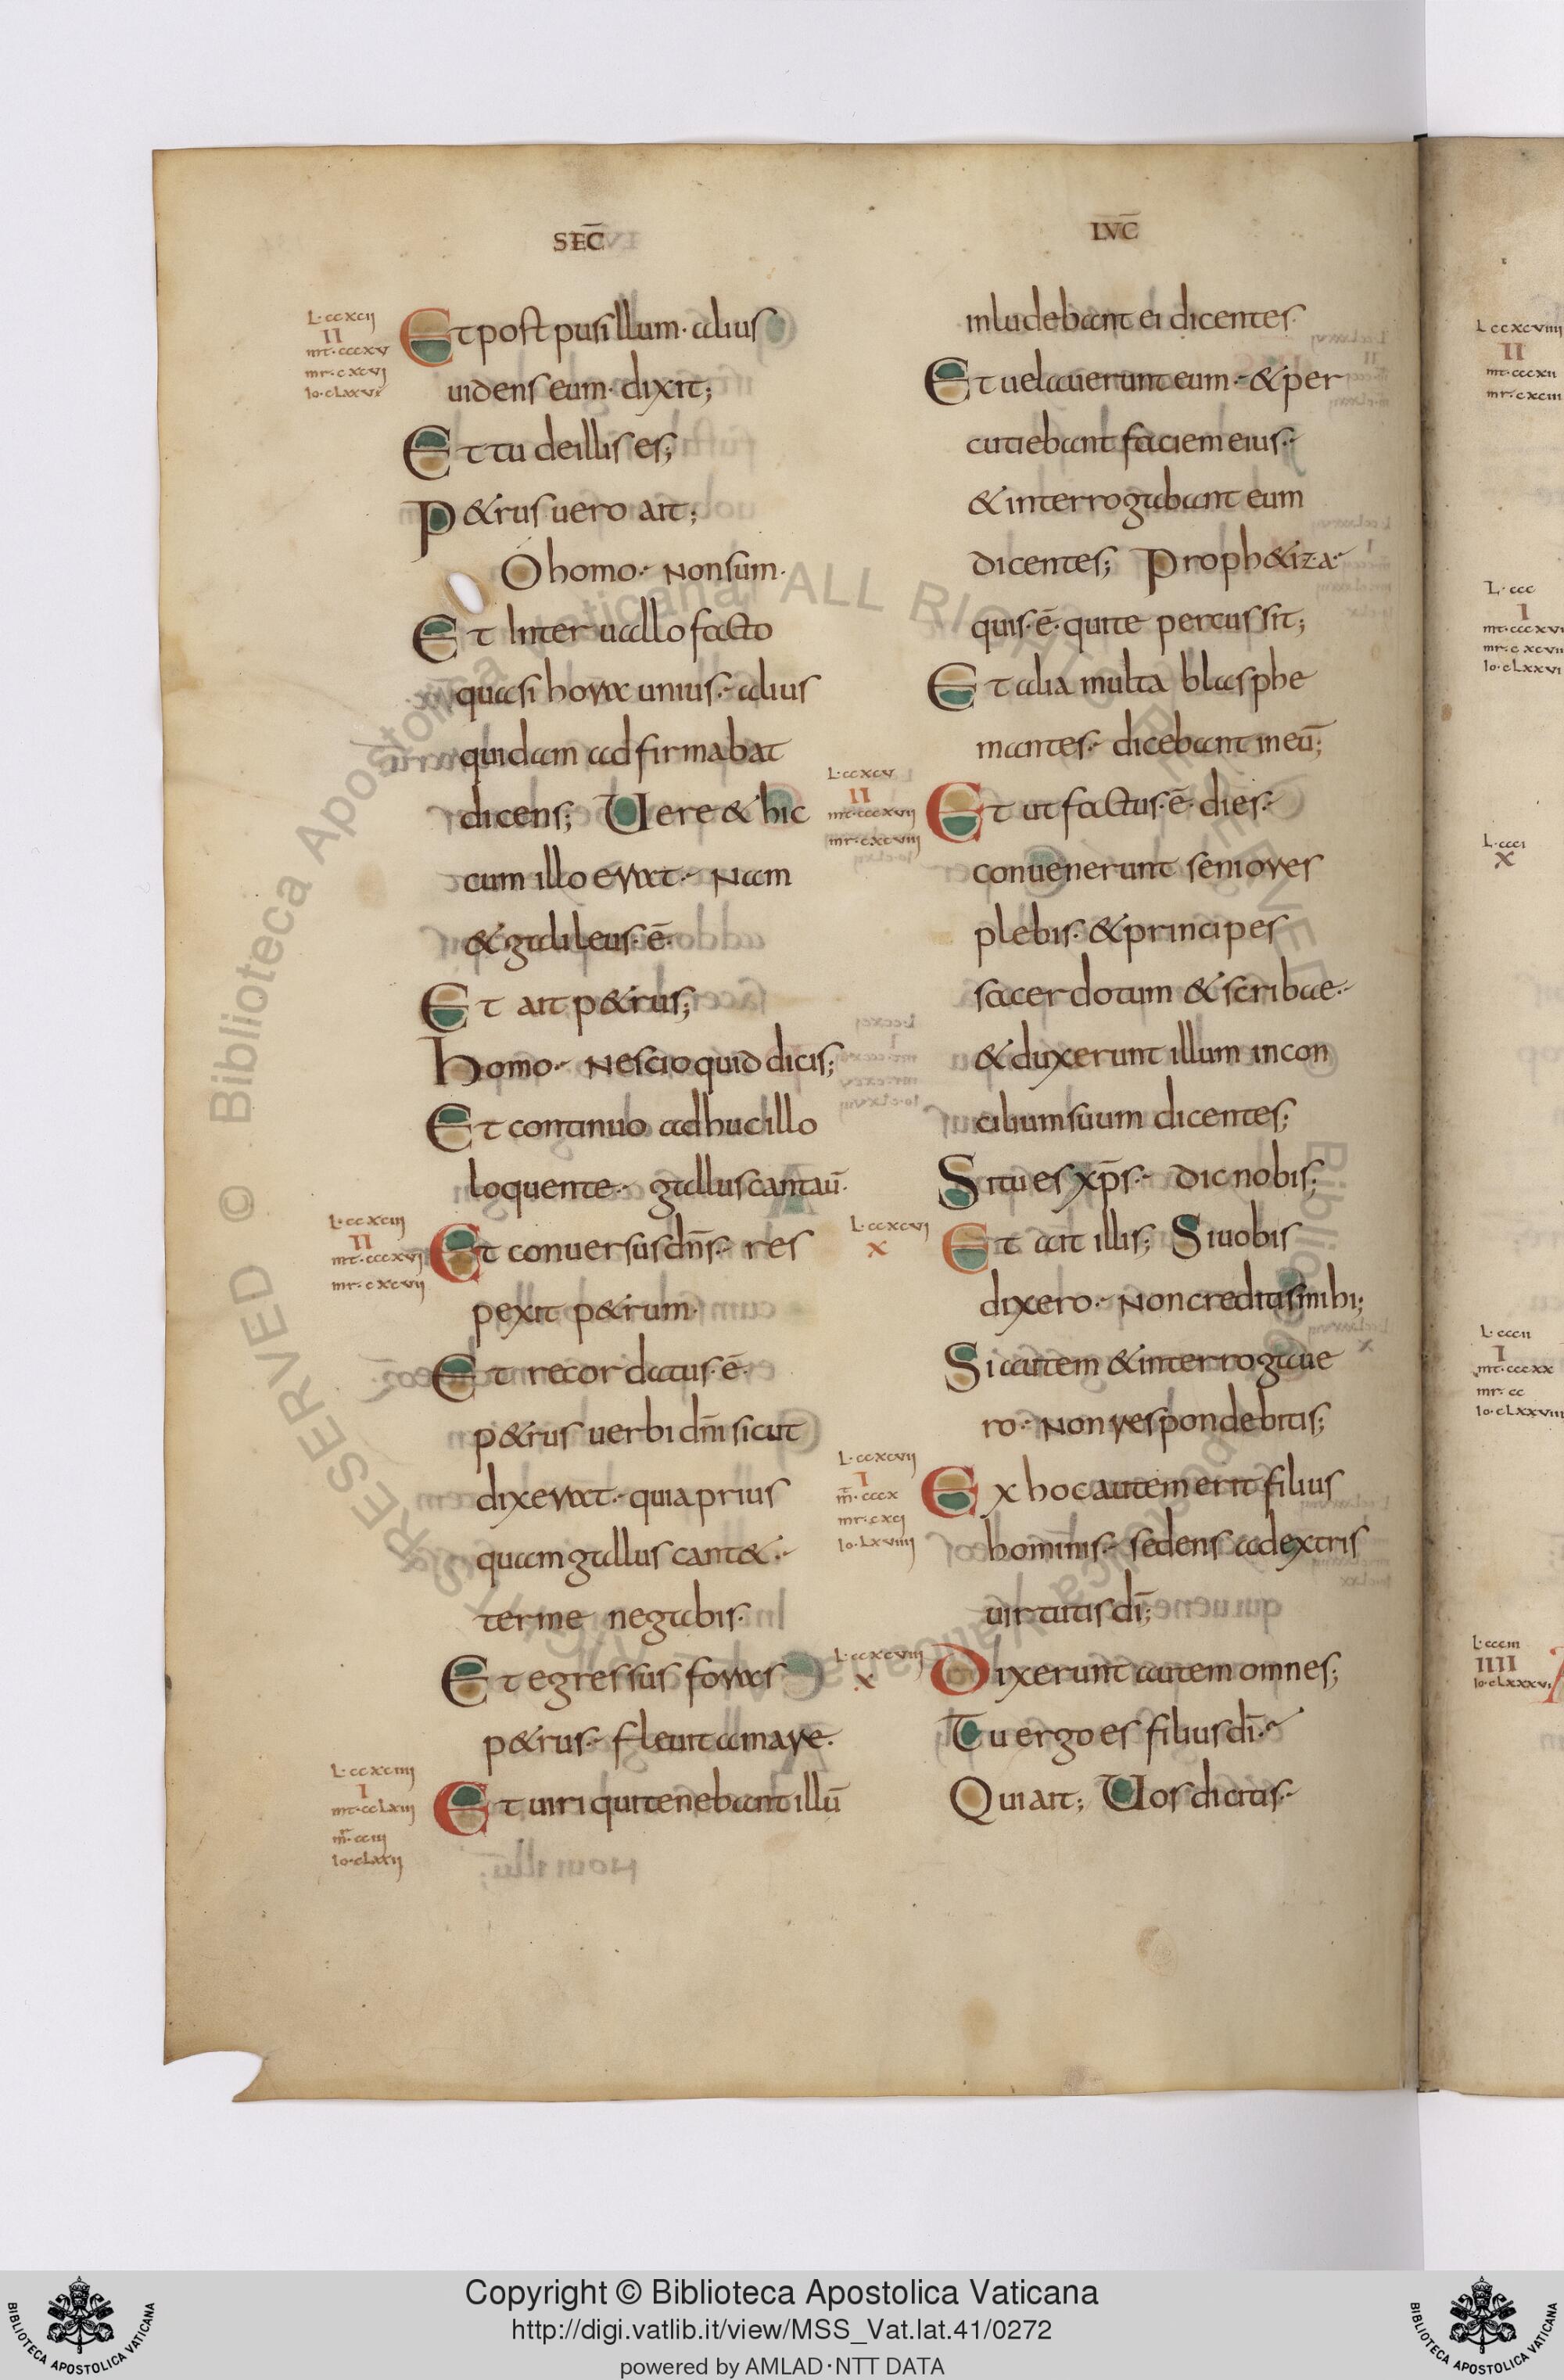 SEC̄
L·ccxcıj
II
mt·cccxv
mr·cxcvj
Io·cLxxvı
Et post pusillum· alius
uidens eum· dixit;
Et tu deillis es;
P&rus uero ait;
O homo· Non sum·
Et Inter uallo facto
quasi hora unius· alius
quidam adfirmabat
dicens; Uere & hic
cum illo erat· Nam
& galileus· ē·
Et ait p&rus;
homo· Nescio quid dicis;
Et continuo adhuc illo
loquente· gallus cantaū·
L·ccxcııj
II
mt·cccxvj
mr·cxcvıj
Et conuersus dn̄s· res
pexit p&rum·
Et recordatus· ē·
p&rus uerbi dn̄i sicut
dixerat· quia prius
quam gallus cant&·
ter me negabis·
Et egressus foras
p&rus· fleuit amare·
L·ccxcıııj
I
mt·ccLxııj
mr·ccııj
Io·cLxxıj
Et uiri qui tenebant illū
LVC̄
inludebant ei dicentes·
Et uelauerunt eum· & per
cutiebant faciem eius·
& interrogabant eum
dicentes; Proph&iza·
quis· ē· qui te percussit;
Et alia multa blasphe
mantes· dicebant in eū;
L·ccxcv
II
mt·cccxvıj
mr·cxcvııj
Et ut factus· ē· dies·
conuenerunt seniores
plebis· & principes
sacerdotum & scribae·
& duxerunt illum in con
cilium suum dicentes;
Si tu es xp̄s· dic nobis;
L·ccxcvj
X
Et ait illis; Si uobis
dixero· Non creditis mihi;
Si autem & interrogaue
ro· Non respondebitis;
L·ccxcvıj
I
m̄·cccx
mr·cxcj
Io·Lxvıııj
Ex hoc autem erit filius
hominis· sedens adextris
uirtutis dī;
L·ccxcvııj
X
Dixerunt autem omnes;
Tu ergo es filius dī·
Qui ait; Uos dicitis·
L ccxcvıııj
II
mt·cccxıı
mr·cxcııı
L·ccc
I
L·cccı
X
L·cccıı
I
mt·cccxx
mr·cc
Io·cLxxvııı
L·cccııı
IIII
Io·cLxxxvı
Copyright © Biblioteca Apostolica Vaticana
http://digi.vatlib.it/view/MSS_Vat.lat.41/0272
powered by AMLAD·NTT DATA
BIBLIOTECA APOSTOLICA VATICANA
BIBLIOTECA APOSTOLICA VATICANA